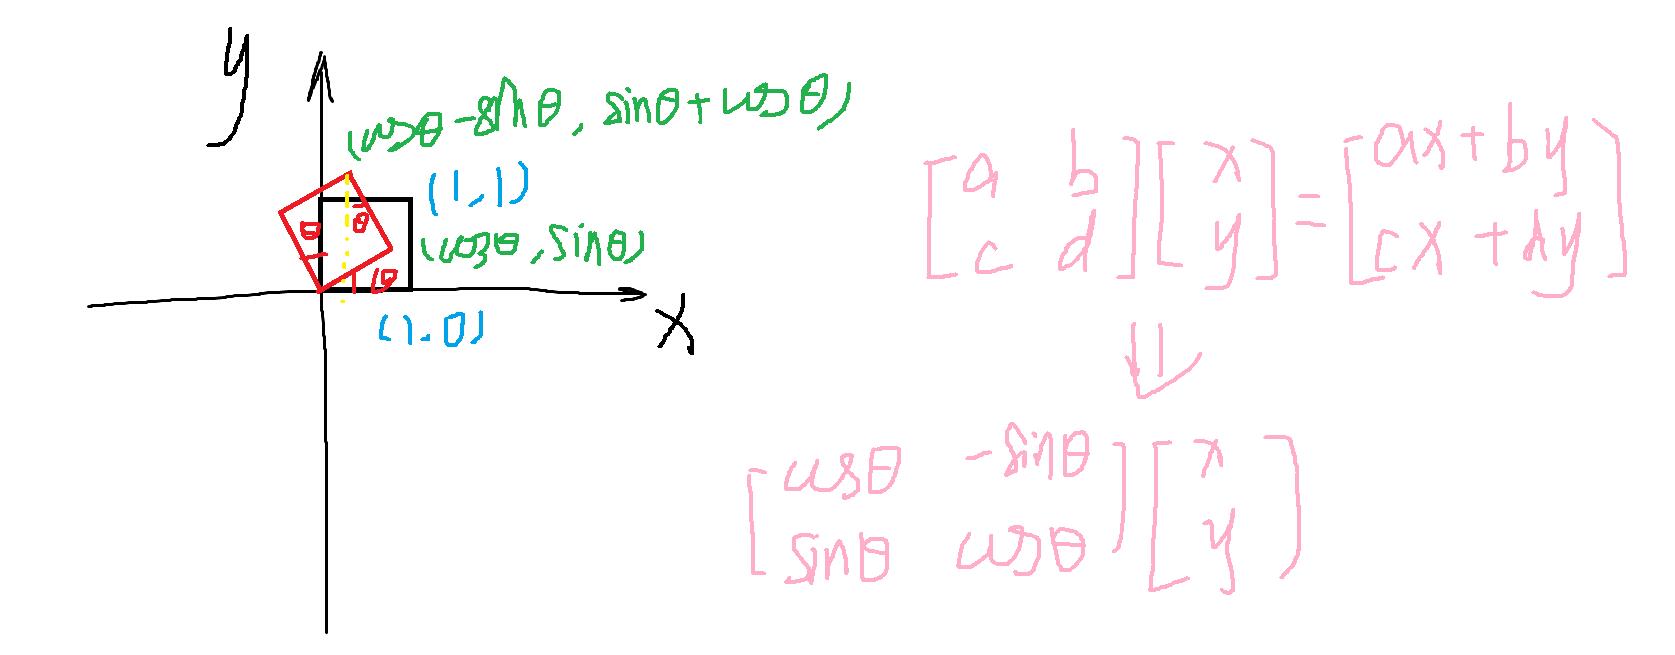 y
(cosθ -sinθ, sinθ+cosθ)
(1,1)
θ θ
(cosθ,sinθ)
θ
(1.0)
x
[a b
c d] [x
y] = [ax+by
cx+dy]
[cosθ -sinθ
sinθ cosθ] [x
y]